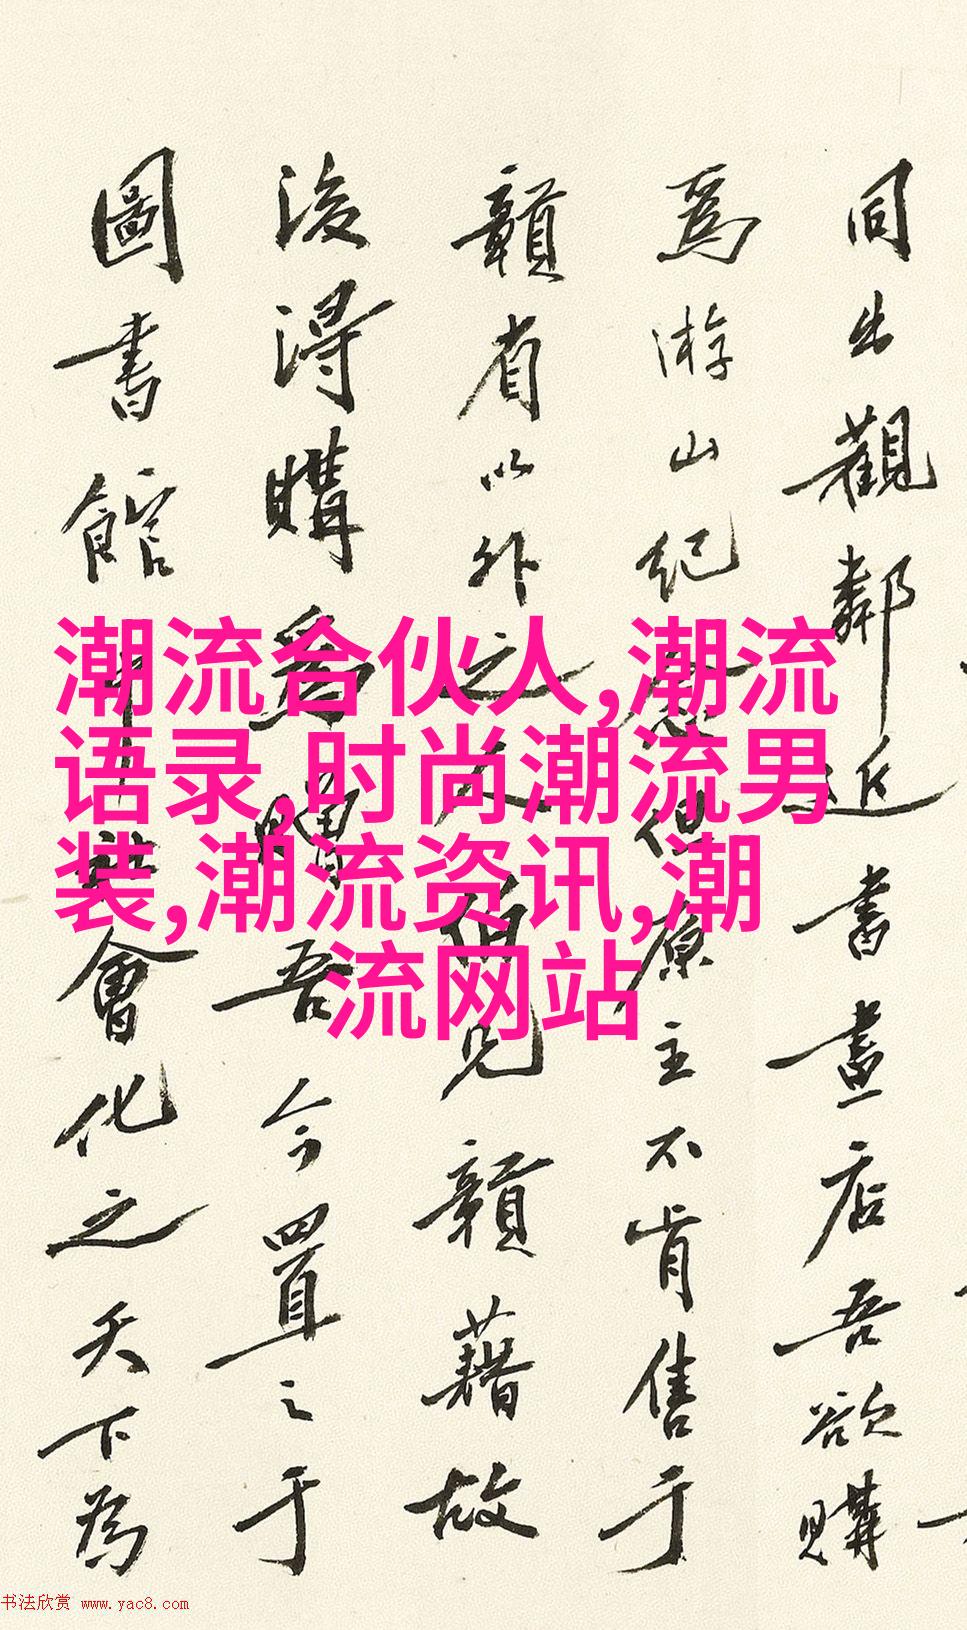 同出觀鄰近書畫店吾欲購
爲游山紀念但原主不肯售于
贛省以外之人伯兄贛籍故
後得購爲贈吾今置之于
圖書館社會化之天下為
潮流合伙人,潮流
语录,时尚潮流男
装,潮流资讯,潮
流网站
书法欣赏 www.yac8.com